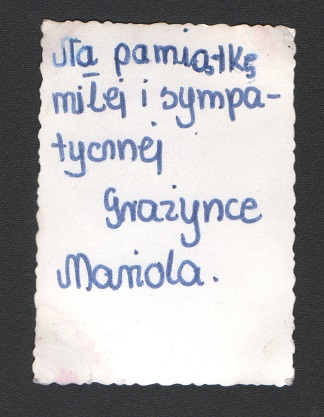 Na pamiątkę
miłej i sympa-
tycznej
Grażynce
Mariola.